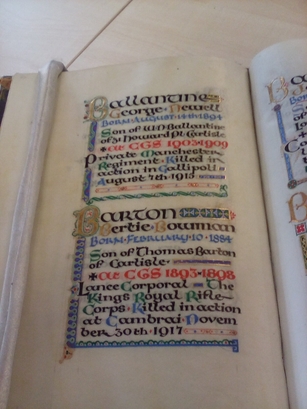 Ballantine
George Newell
Born August 14th 1894
Son of W.N. Ballantine
of 31 Howard Pl. Carlisle
At CGS 1903-1909
Private Manchester
Regiment Killed in
action in Gallipoli
August 7th 1915
Barton
Bertie Bowman
Born February 10 1884
Son of Thomas Barton
of Carlisle
At CGS 1893-1898
Lance Corporal The
Kings Royal Rifle
Corps Killed in action
at Cambrai Novem
ber 30th 1917